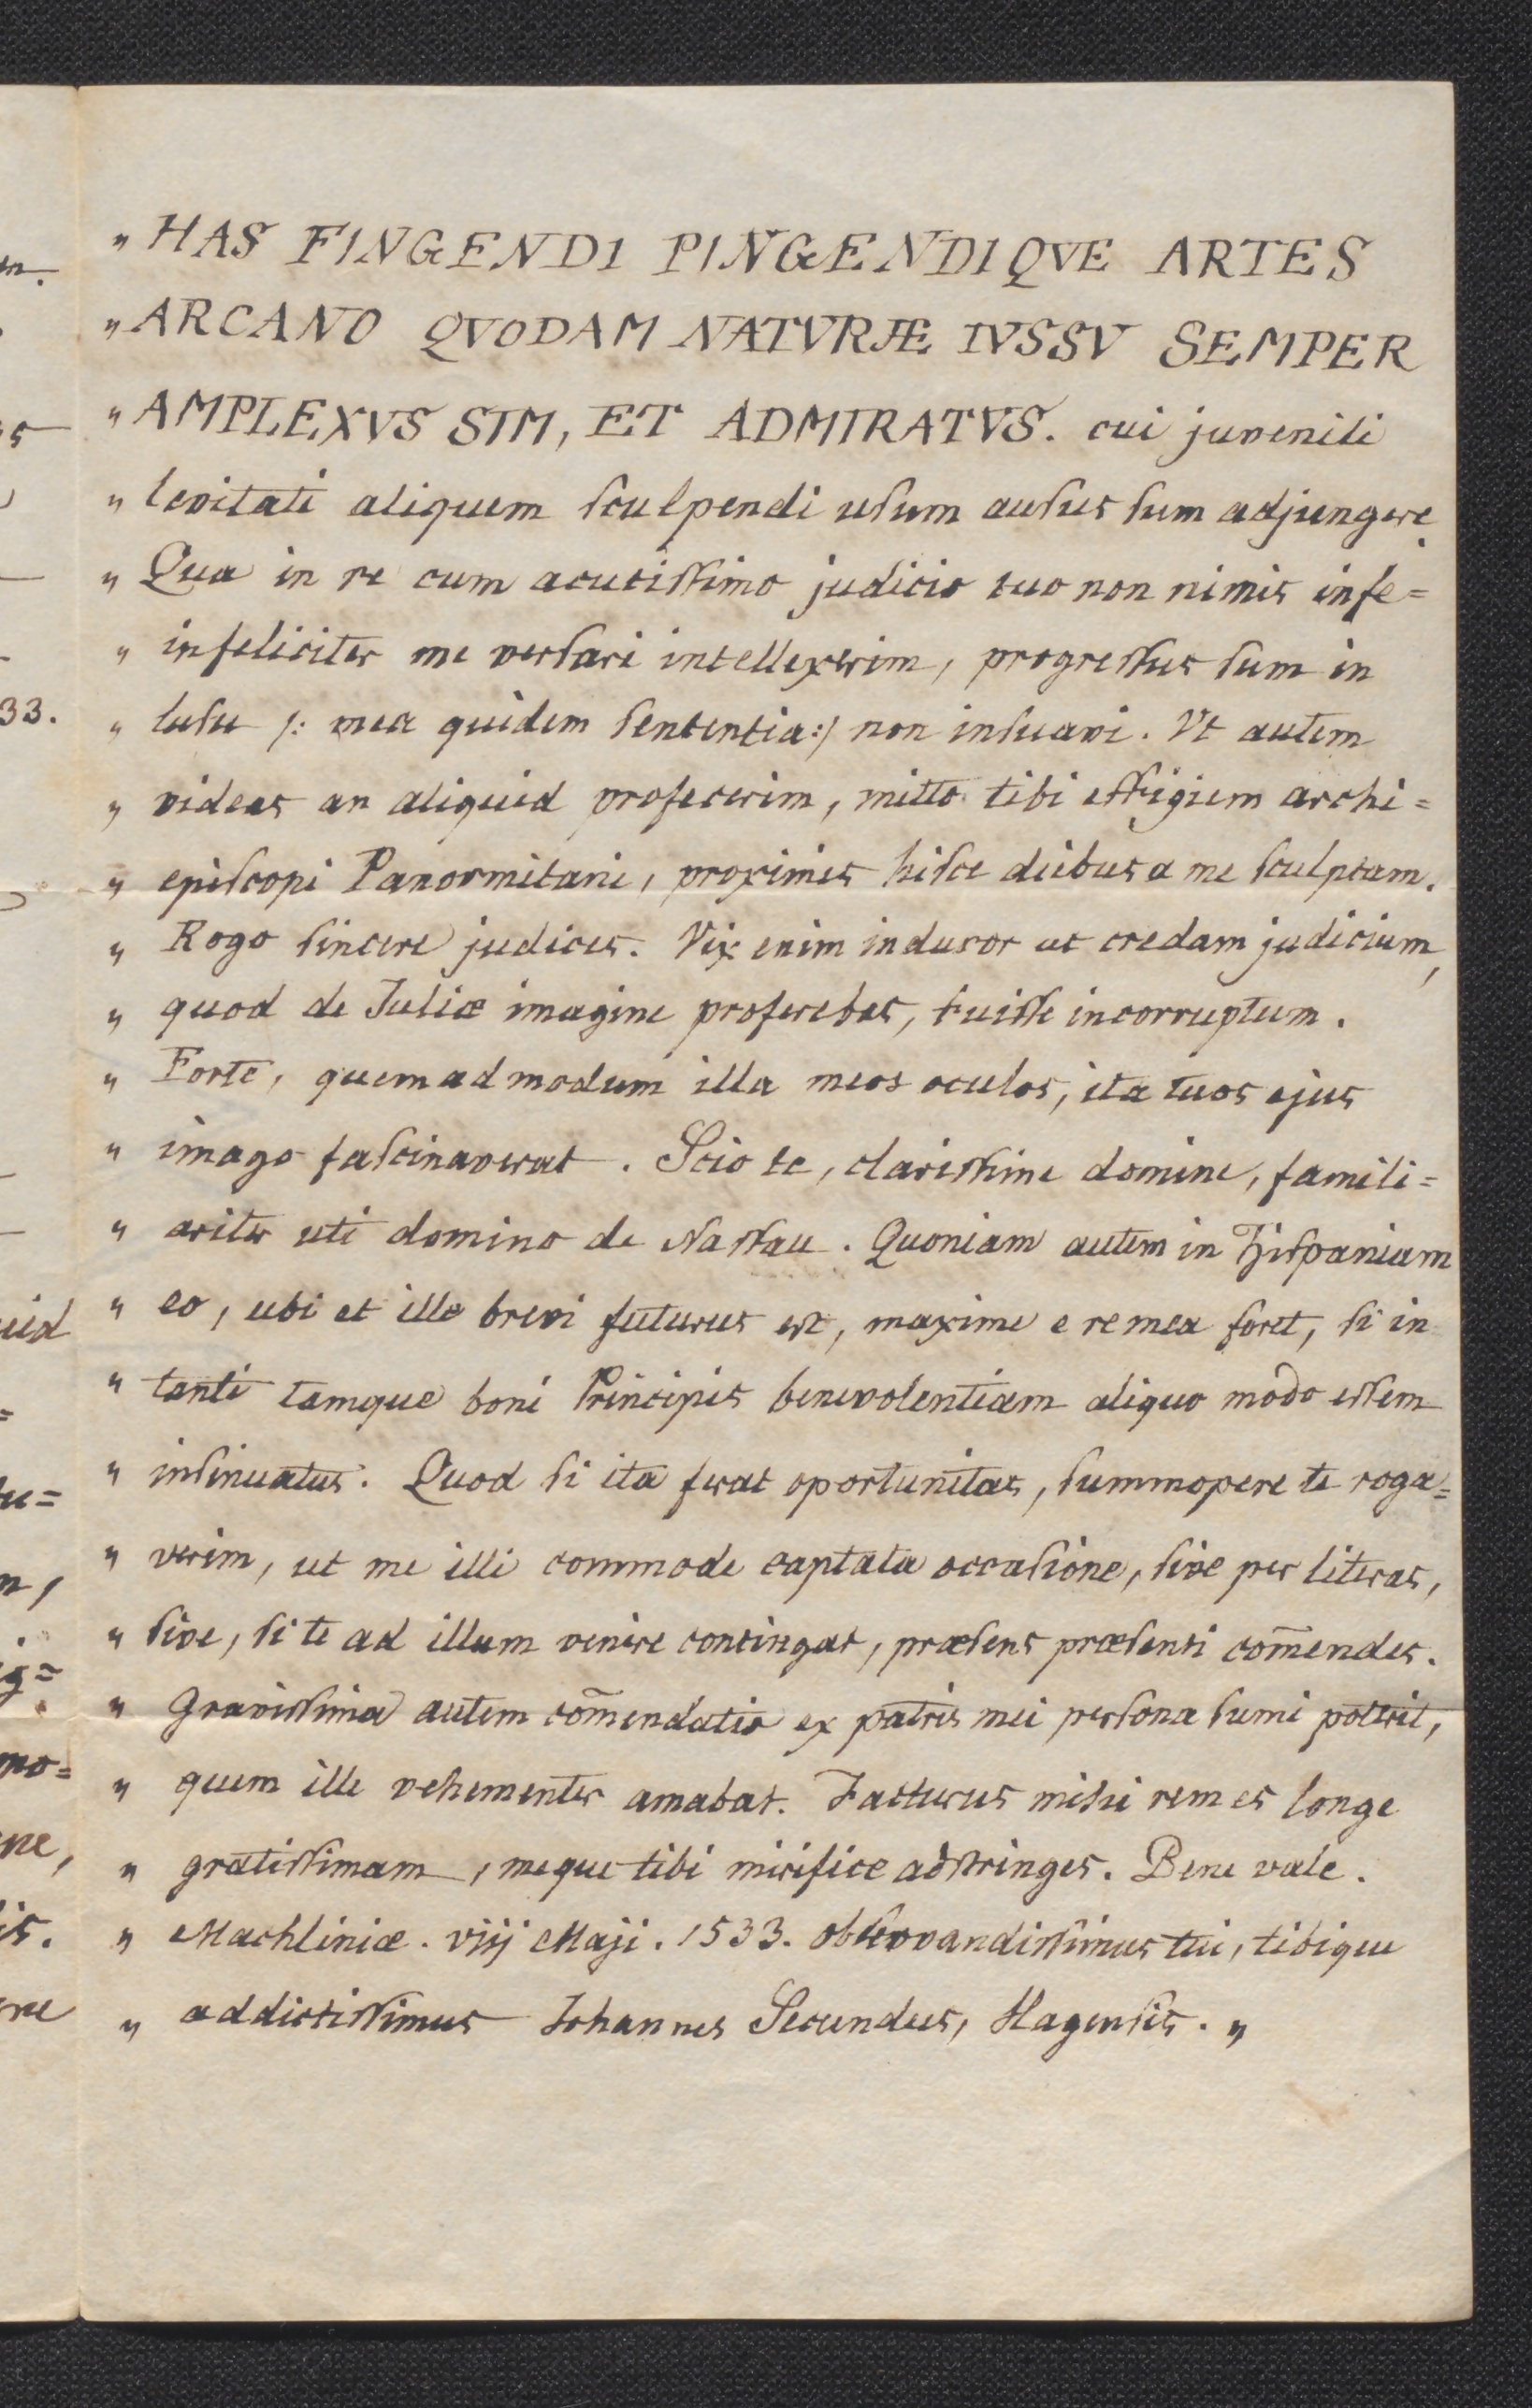 „ HAS FINGENDI PINGENDIQVE ARTES
„ ARCANO QVODAM NATVRÆ IVSSV SEMPER
„ AMPLEXVS SIM, ET ADMIRATVS. cui juvenili
„ levitati aliquem sculpendi usum ausus sum adjungere.
„ Qua in re cum acutissimo judicio tuo non nimis infe=
„ infeliciter me versari intellexerim, progressus sum in
„ lusu /: mea quidem sententia :/ non insuavi. Vt autem
„ videas an aliquid profecerim, mitto tibi effigiem archi=
„ episcopi Panormitani, proximis hisce diebus a me sculptam.
„ Rogo sincere judices. Vix enim inducor ut credam judicium,
„ quod de Juliæ imagine proferebas, fuisse incorruptum.
„ Forte, quemadmodum illa meos oculos, ita tuos ejus
„ imago fascinaverat. Scio te, clarissime domine, famili=
„ ariter uti domino de Nassau. Quoniam autem in Hispaniam
„ eo, ubi et ille brevi futurus est, maxime e re mea foret, si in
„ tanti tamque boni Principis benevolentiam aliquo modo essem
„ insinuatus. Quod si ita ferat oportunitas, summopere te roga=
„ verim, ut me illi commode captata occasione, sive per literas,
„ sive, si te ad illum venire contingat, præsens præsenti com̄endes.
„ Gravissima autem com̄endatio ex patris mei persona sumi poterit,
„ quem ille vehementer amabat. Facturus mihi rem es longe
„ gratissimam, meque tibi mirifice adstringes. Bene vale.
„ Machliniæ. viij Maji. 1533. observandissimus tui, tibique
„ addictissimus Johannes Secundus, Hagensis. „
33.
uid